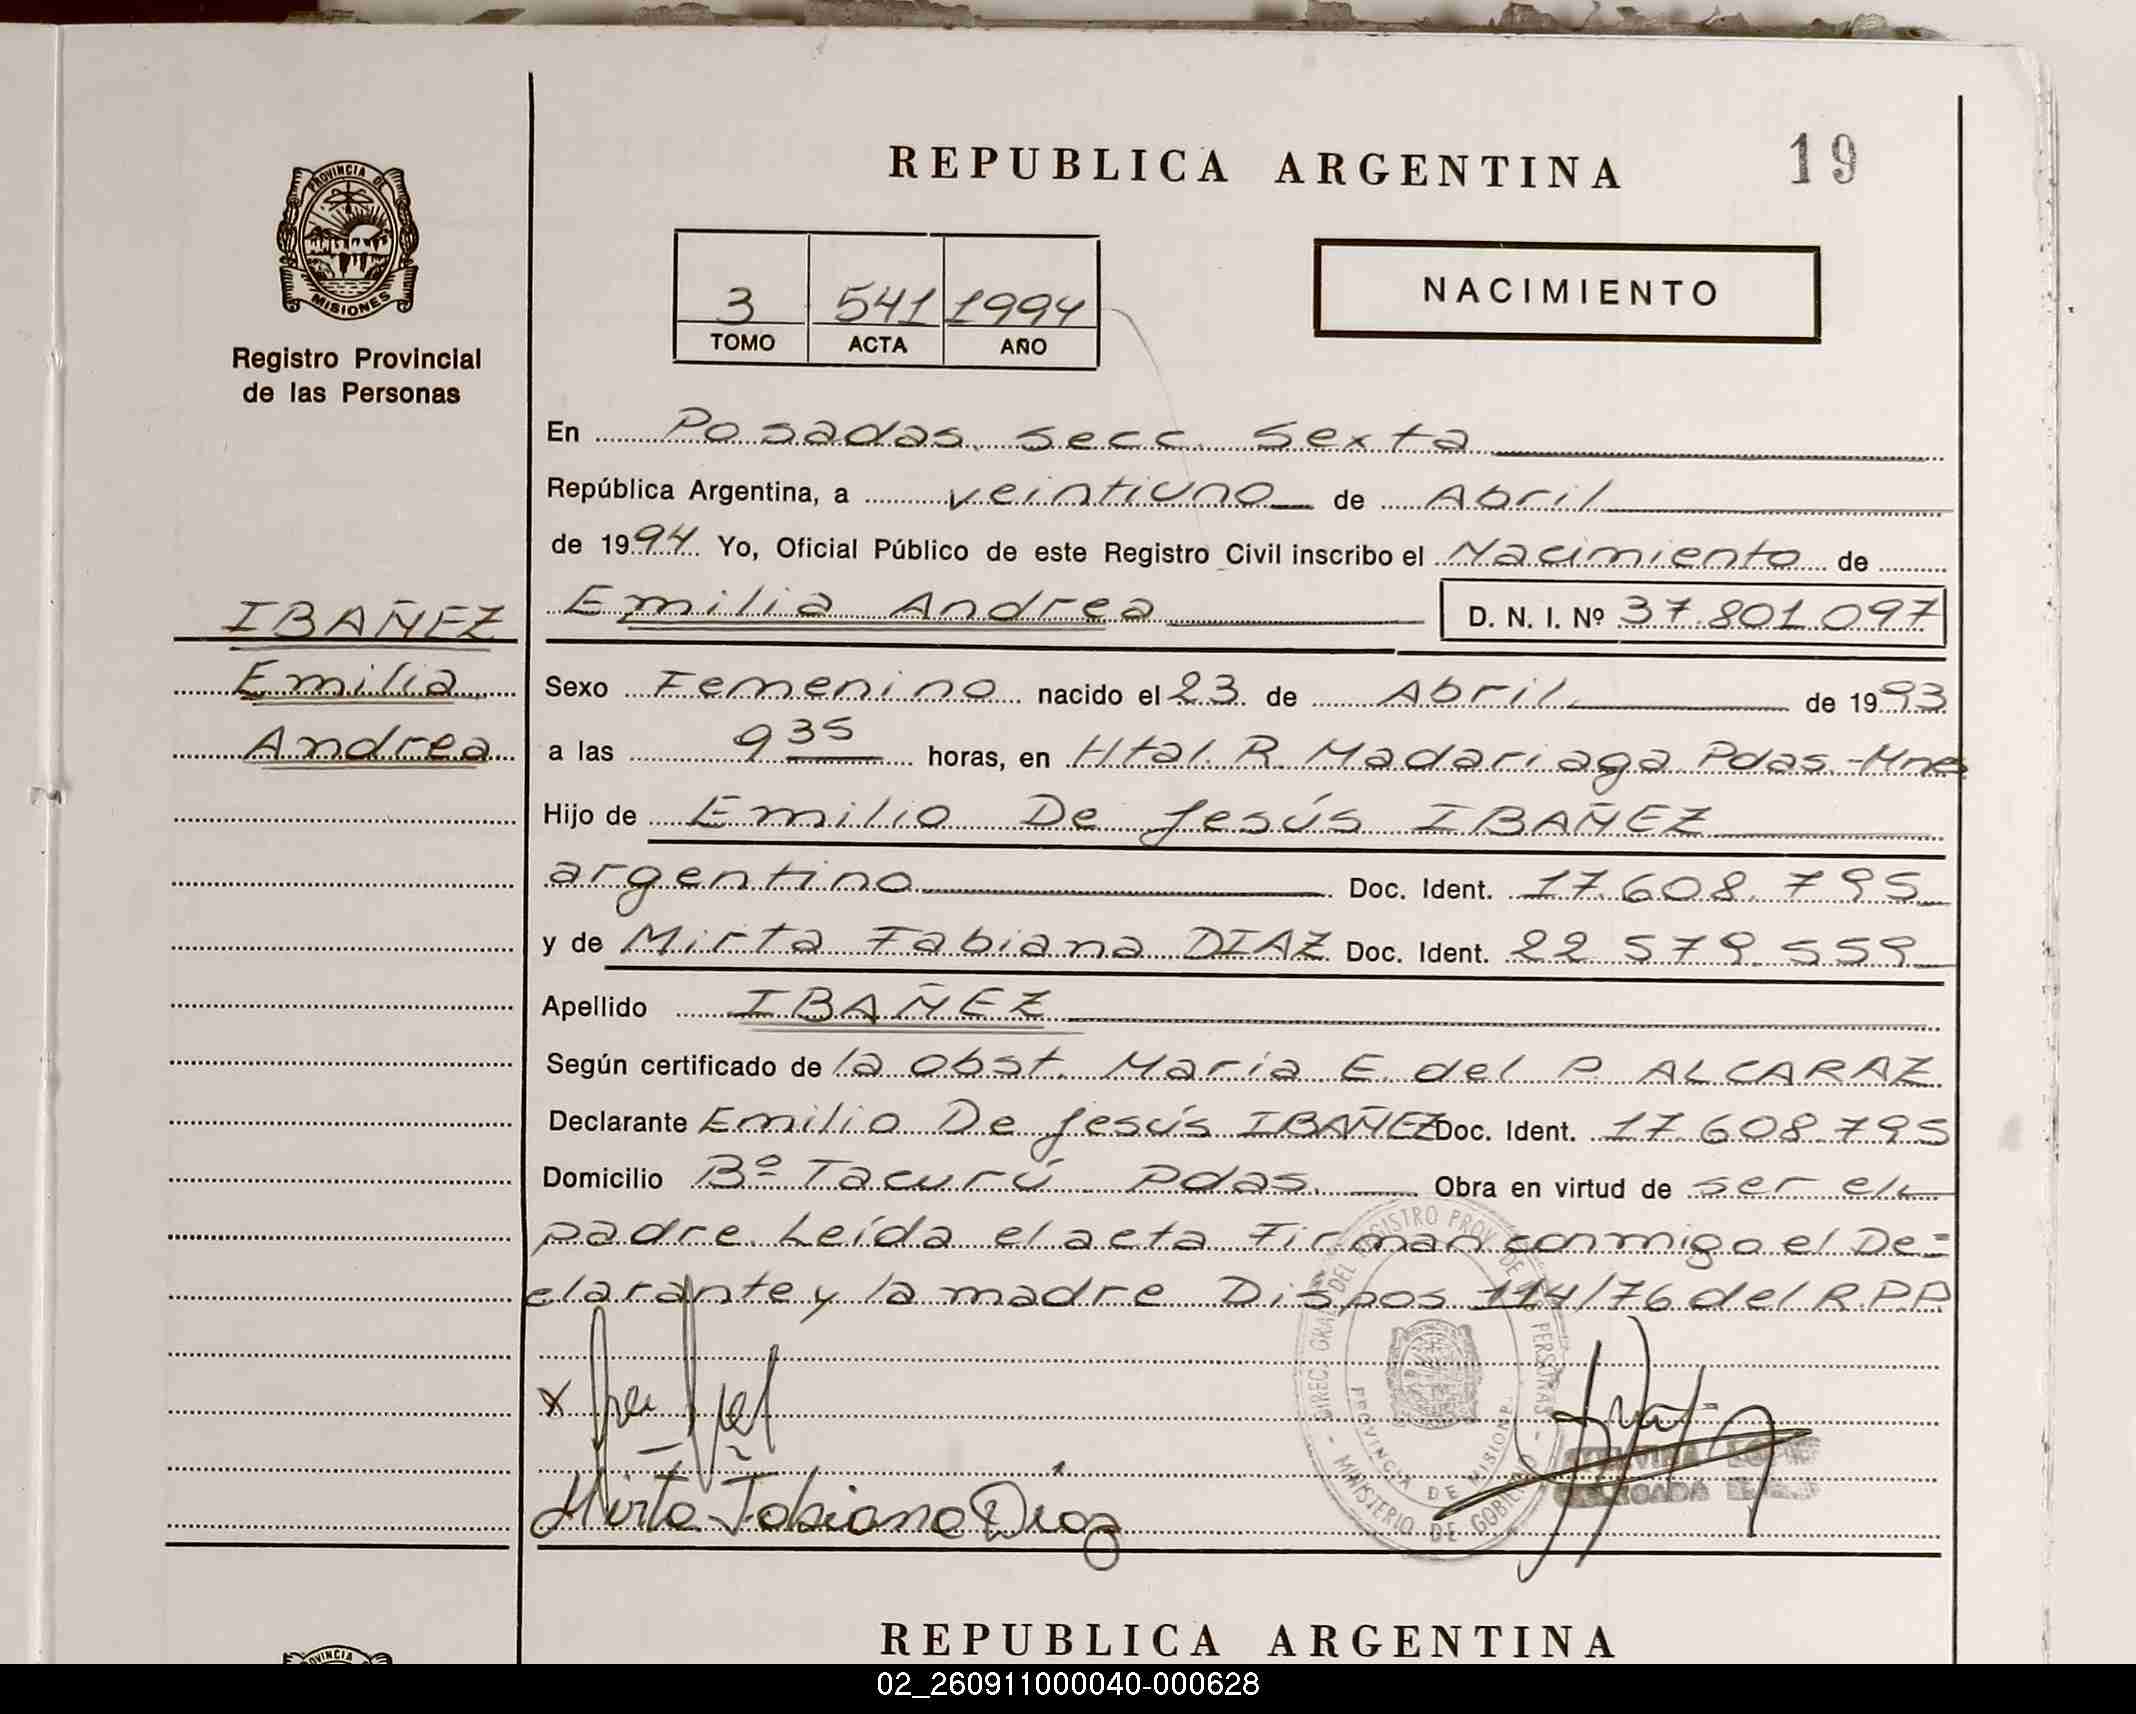 REPUBLICA ARGENTINA
19
PROVINCIA DE
MISIONES
Registro Provincial
de las Personas
3 541 1994
TOMO ACTA AÑO
NACIMIENTO
En Posadas, secc. Sexta
República Argentina, a veintiuno de Abril
de 1994 Yo, Oficial Público de este Registro Civil inscribo el Nacimiento de
IBAÑEZ
Emilia
Andrea
Emilia Andrea D. N. I. Nº 37.801.097
Sexo Femenino nacido el 23 de Abril de 1993
a las 9 35 horas, en Htal. R. Madariaga Pdas.-Mnes
Hijo de Emilio De Jesús IBAÑEZ
argentino Doc. Ident. 17.608.795
y de Mirta Fabiana DIAZ Doc. Ident. 22.579.559
Apellido IBAÑEZ
Según certificado de la obst. María E. del P. ALCARAZ
Declarante Emilio De Jesús IBAÑEZ Doc. Ident. 17.608.795
Domicilio Bº Tacurú Pdas. Obra en virtud de ser el
padre. Leída el acta Firman conmigo el De=
clarante y la madre Dispos 114/76 del R.P.P
DEL REGISTRO PROV. DE PERSONAS
PROVINCIA DE MISIONES
MINISTERIO DE GOBIERNO
Mirta Fabiana Diaz
REPUBLICA ARGENTINA
02_260911000040-000628